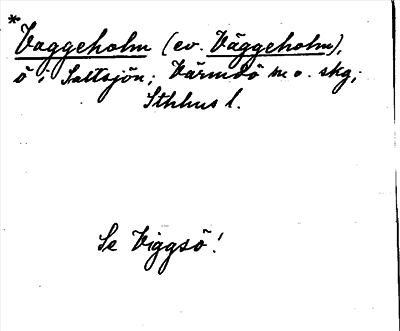 *
Vaggeholm (ev. Väggeholm),
ö i Saltsjön; Värmdö m.o. skg;
Sthlms l.
Se Viggsö!